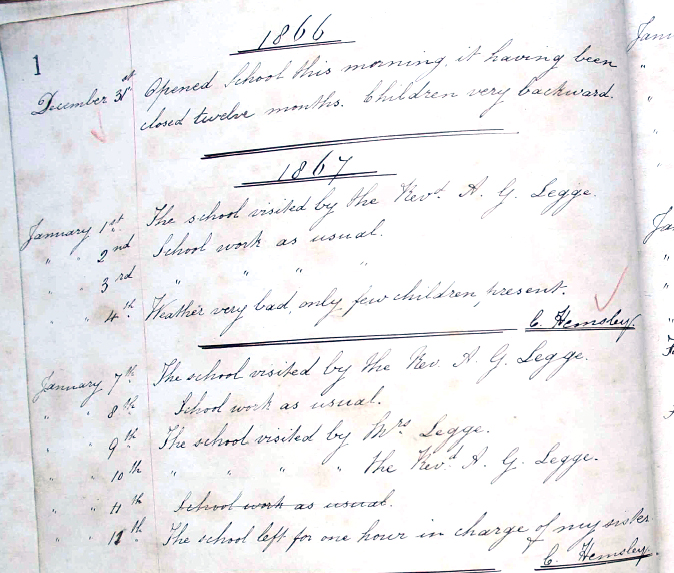 1866
1
December 31st Opened School this morning, it having been
closed twelve months. Children very backward.
1867
January 1st The school visited by the Revd. A. G. Legge.
" " 2nd School work as usual.
" " 3rd " " " "
" " 4th Weather very bad, only few children, present.
C. Hemsley.
January 7th The school visited by the Rev. A. G. Legge.
" " 8th School work as usual.
" " 9th The school visited by Mrs Legge.
" " 10th " " " " the Revd. A. G. Legge.
" " 11th School work as usual.
" " 12th The school left for one hour in charge of my sister.
C. Hemsley.